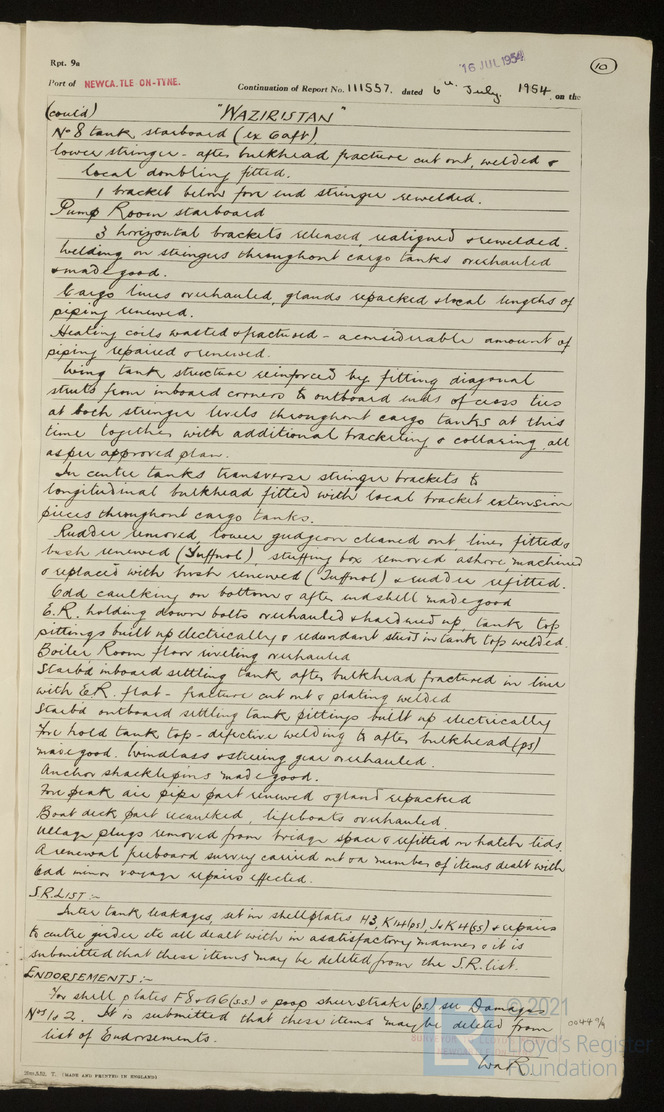 Rpt. 9a
16 JUL 1954
10
Port of NEWCASTLE-ON-TYNE. Continuation of Report No. 111557. dated 6th July. 1954, on the
(cont'd) "WAZIRISTAN"
No 8 tank, starboard (ex 6 aft),
lower stringer - after bulkhead fracture cut out, welded &
local doubling fitted.
1 bracket below fore end stringer rewelded.
Pump Room starboard
3 horizontal brackets released, realigned & rewelded.
Welding on stringers throughout cargo tanks overhauled
& made good.
Cargo lines overhauled, glands repacked & local lengths of
piping renewed.
Heating coils wasted & fractured - a considerable amount of
piping repaired & renewed.
Wing tank structure reinforced by fitting diagonal
struts from inboard corners to outboard ends of cross ties
at both stringer levels throughout cargo tanks at this
time together with additional bracketing & collaring, all
as per approved plan.
In centre tanks transverse stringer brackets to
longitudinal bulkhead fitted with local bracket extension
pieces throughout cargo tanks.
Rudder removed, lower gudgeon cleaned out, liner fitted &
bush renewed (Tuffnol), stuffing box removed ashore, machined
& replaced with bush renewed (Tuffnol) & rudder refitted.
Odd caulking on bottom & after end shell made good
E.R. holding down bolts overhauled & hardened up, tank top
pittings built up electrically & redundant studs in tank top welded.
Boiler Room floor riveting overhauled
Starbd inboard settling tank after bulkhead fractured in line
with E.R. flat - fracture cut out & plating welded
Starbd outboard settling tank pittings built up electrically
Fore hold tank top - defective welding to after bulkhead (ps)
made good. Windlass & steering gear overhauled.
Anchor shackle pins made good.
Fore peak air pipe part renewed & gland repacked
Boat deck part recaulked, lifeboats overhauled.
Ullage plugs removed from bridge space & refitted on hatch lids.
A renewal freeboard survey carried out & a number of items dealt with
Odd minor voyage repairs effected.
S.R. LIST :-
Inter tank leakages, set in shell plates H3, K14(ps), J & K4(ss) & repairs
to centre girder etc all dealt with in a satisfactory manner & it is
submitted that these items may be deleted from the S.R. list.
ENDORSEMENTS :-
For shell plates F8 & G6(ss) & poop sheerstrake (ps) see Damages
Nos 1 & 2. It is submitted that these items may be deleted from
list of Endorsements.
© 2021
Lloyd's Register
Foundation
(MADE AND PRINTED IN ENGLAND)